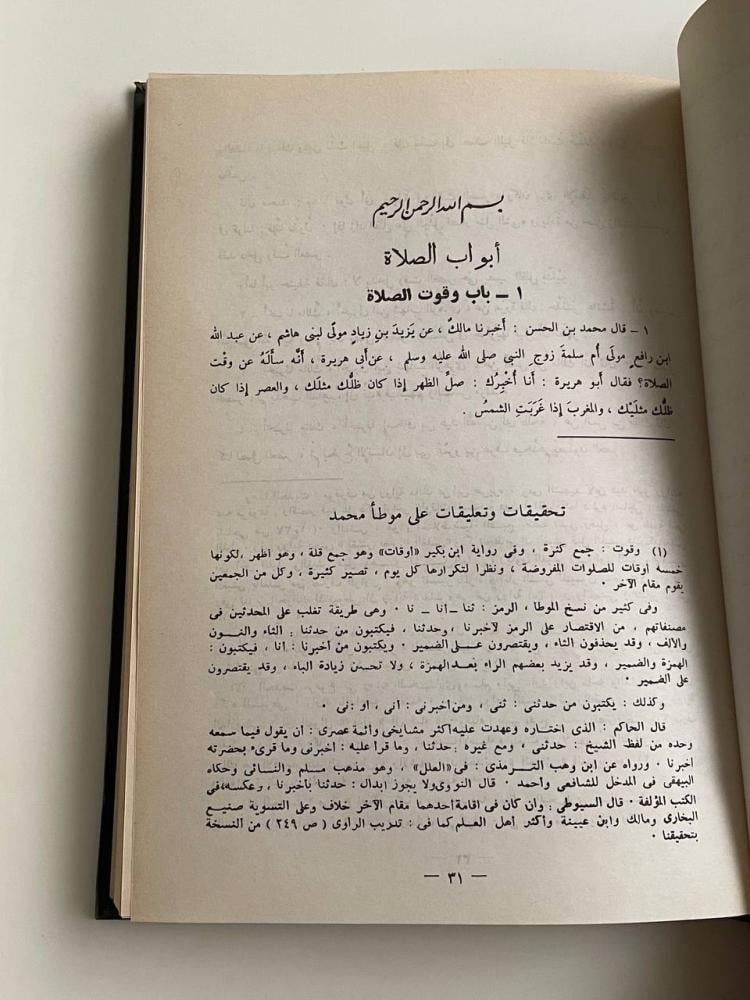 بسم الله الرحمن الرحيم
أبواب الصلاة
١ ــ باب وقوت الصلاة
١ ــ قال محمد بن الحسن : أخبرنا مالكٌ ، عن يَزيدَ بنِ زيادٍ مولًى لبنى هاشم ، عن عبد الله
ابن رافعٍ مولَى أُم سلمةَ زوج النبي صلى الله عليه وسلم ، عن أبى هريرة ، أَنَّه سأَلَهُ عن وقْت
الصلاة؟ فقال أَبو هريرة : أَنا أُخْبِرُك : صلِّ الظهر إِذا كان ظلُّك مثلَك ، والعصر إِذا كان
ظلُّك مثلَيْك ، والمغربَ إِذا غَرَبَتِ الشمسُ .
تحقيقات وتعليقات على موطأ محمد
(١) وقوت : جمع كثرة ، وفى رواية ابن بكير «أوقات» وهو جمع قلة ، وهو أظهر ، لكونها
خمسة أوقات للصلوات المفروضة ، ونظرا لتكرارها كل يوم ، تصير كثيرة ، وكل من الجمعين
يقوم مقام الآخر .
وفى كثير من نسخ الموطا ، الرمز : ثنا ــ أنا ــ نا . وهى طريقة تغلب على المحدثين فى
مصنفاتهم ، من الاقتصار على الرمز لأخبرنا ، وحدثنا ، فيكتبون من حدثنا : الثاء والنون
والألف ، وقد يحذفون الثاء ، ويقتصرون على الضمير . ويكتبون من أخبرنا : أنا ، فيكتبون :
الهمزة والضمير ، وقد يزيد بعضهم الراء بعد الهمزة ، ولا تحسن زيادة الباء ، وقد يقتصرون
على الضمير .
وكذلك : يكتبون من حدثنى : ثنى ، ومن أخبرنى : أنى ، أو : نى .
قال الحاكم : الذى أختاره وعهدت عليه أكثر مشايخى وأئمة عصرى : أن يقول فيما سمعه
وحده من لفظ الشيخ : حدثنى ، ومع غيره : حدثنا ، وما قرأ عليه : أخبرنى وما قرىء بحضرته
أخبرنا . ورواه عن ابن وهب الترمذى : فى «العلل» ، وهو مذهب مسلم والنسائى وحكاه
البيهقى فى المدخل للشافعى وأحمد . قال النووى ولا يجوز إبدال : حدثنا بأخبرنا ، وعكسه ، فى
الكتب المؤلفة . قال السيوطى : وإن كان فى إقامة أحدهما مقام الآخر خلاف وعلى التسوية صنيع
البخارى ومالك وابن عيينة وأكثر أهل العلم كما فى : تدريب الراوى ( ص ٢٤٩ ) من النسخة
بتحقيقنا .
ــ ٣١ ــ